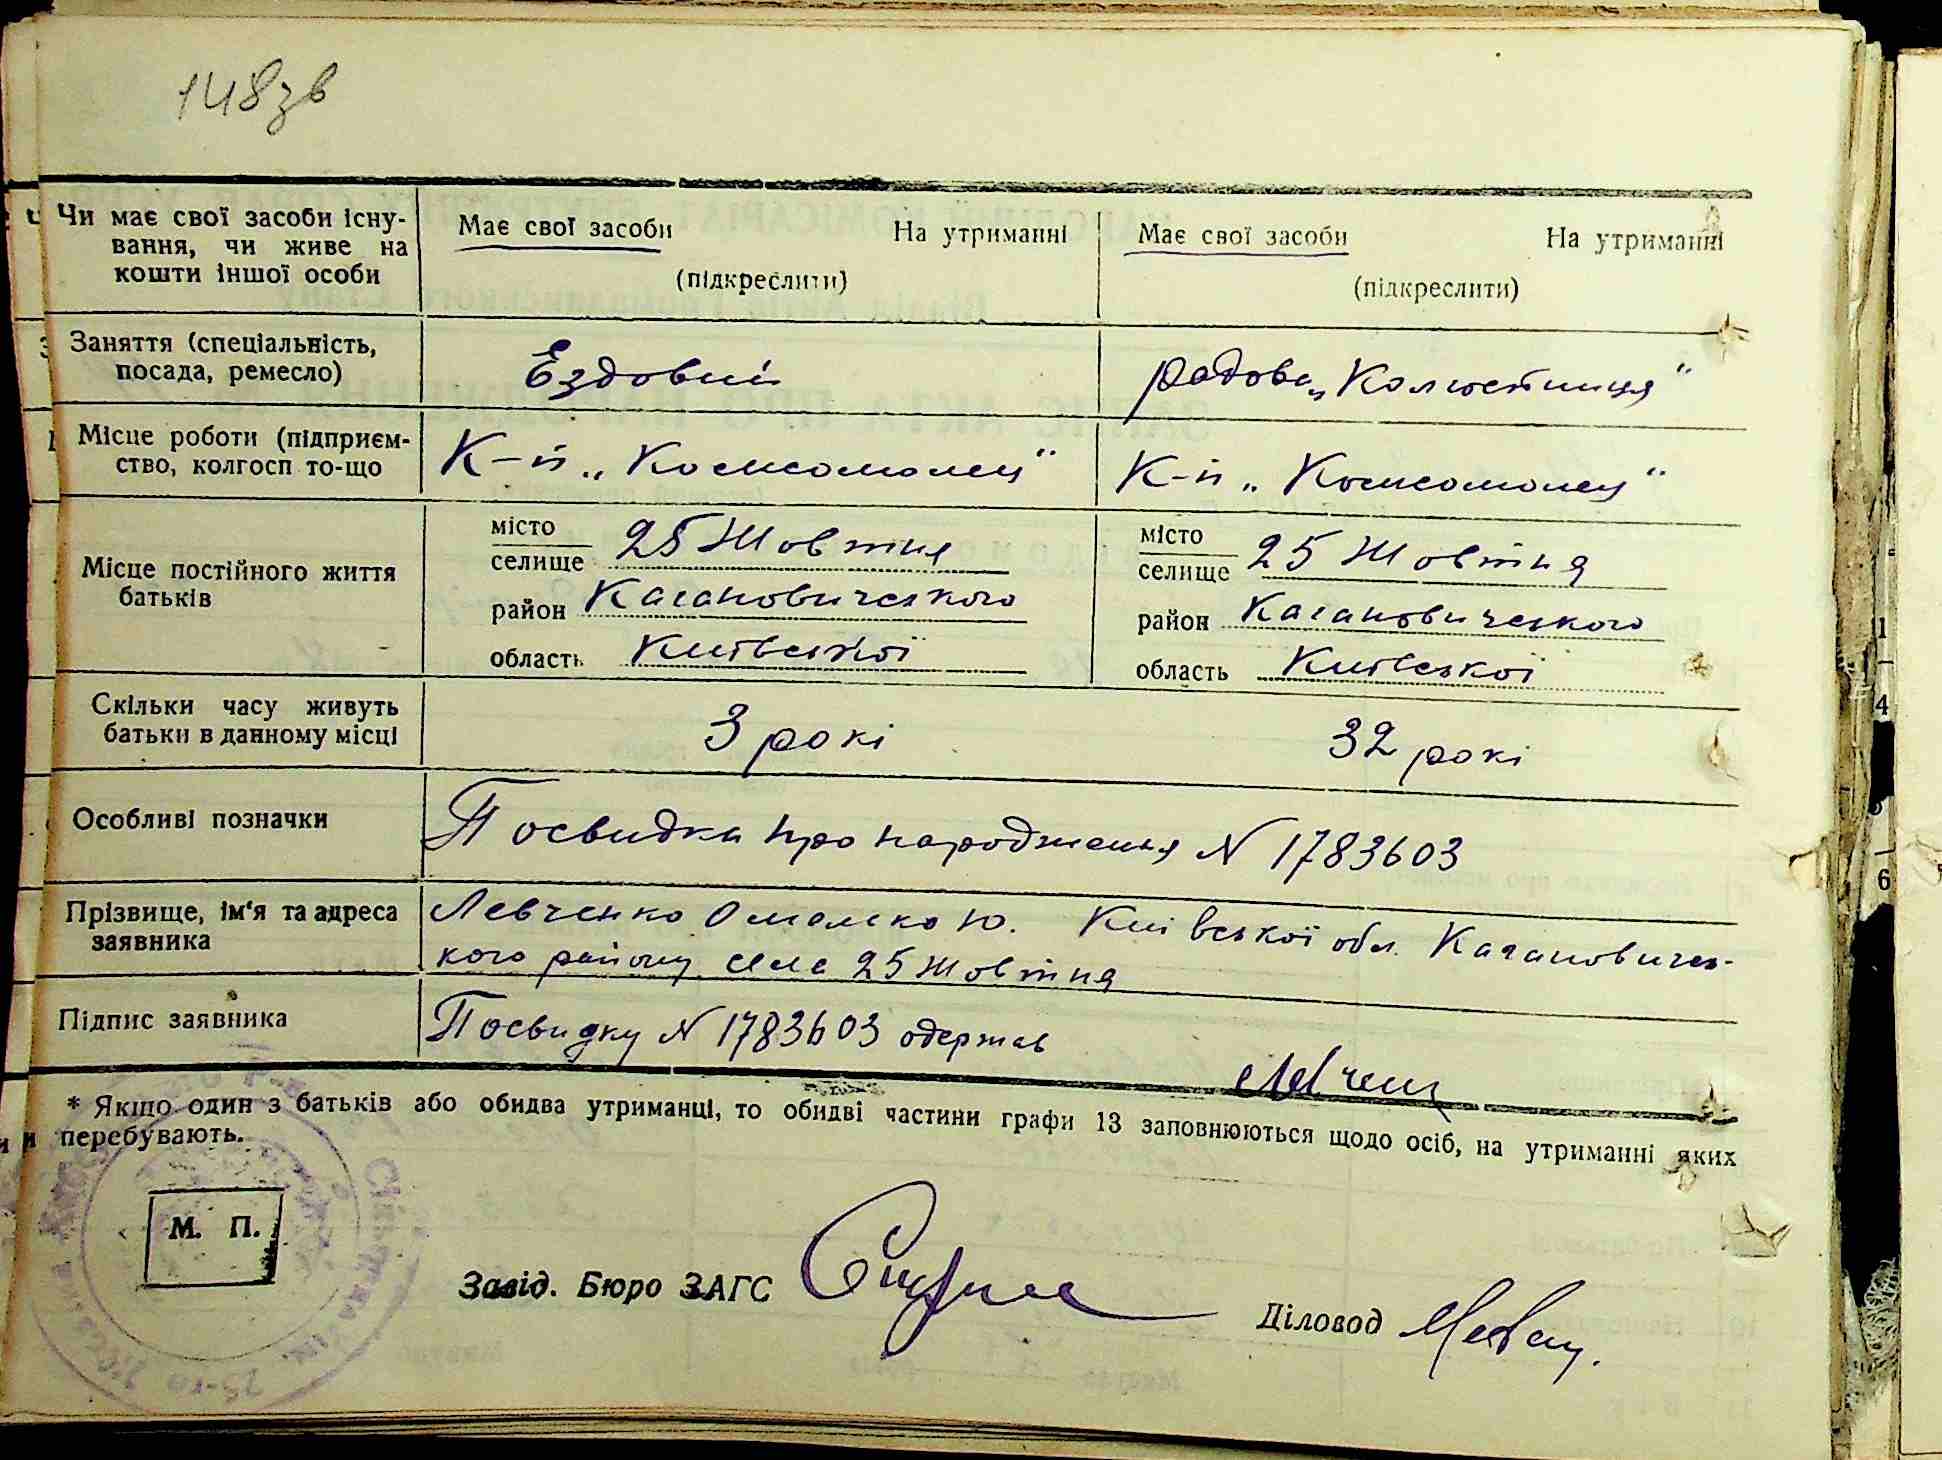 148зв
Чи має свої засоби існу-
вання, чи живе на
кошти іншої особи
Має свої засоби На утриманні
(підкреслити)
Має свої засоби На утриманні
(підкреслити)
Заняття (спеціальність,
посада, ремесло)
Ездовий
радова „Колгостниця"
Місце роботи (підприєм-
ство, колгосп то-що
К-п „Комсомолец"
К-п „Комсомолец"
Місце постійного життя
батьків
місто
селище 25 Жовтня
район Кагановичского
область Київської
місто
селище 25 Жовтня
район Кагановичского
область Київської
Скільки часу живуть
батьки в данному місці
3 рокі
32 рокі
Особливі позначки
Посвидка про народження N 1783603
Прізвище, ім'я та адреса
заявника
Левченко Омелько Ю. Київської обл. Кагановичсь-
кого району село 25 Жовтня
Підпис заявника
Посвидку N 1783603 одержав
* Якщо один з батьків або обидва утриманці, то обидві частини графи 13 заповнюються щодо осіб, на утриманні яких
перебувають.
М. П.
Завід. Бюро ЗАГС
Діловод